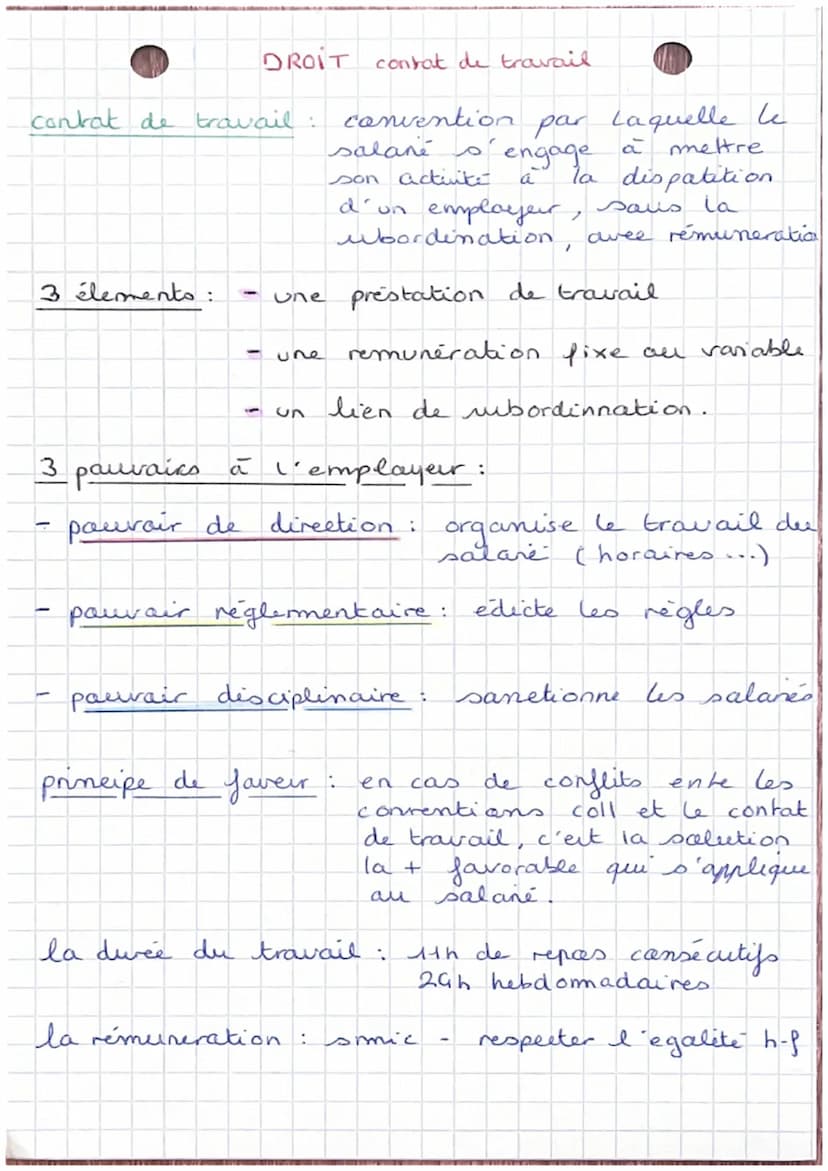 DROIT contrat de travail
contrat de travail : convention par laquelle le
salarié s'engage à mettre
son activité à la disposition
d'un employeur, sous la
subordination, avec rémunératio
3 élements : - une préstation de travail
- une remunération fixe ou variable
- un lien de subordinnation.
3 pouvoirs à l'employeur :
- pouvoir de direction : organise le travail du
salarié (horaires ...)
- pouvoir réglementaire : édicte les règles
- pouvoir disciplinaire : sanctionne les salariés
principe de faveur : en cas de conflits entre les
conventions coll et le contrat
de travail, c'est la solution
la + favorable qui s'applique
au salarié.
la durée du travail : 11h de repos consécutifs
24h hebdomadaires
la rémuneration : smic - respecter l'egalité h-f